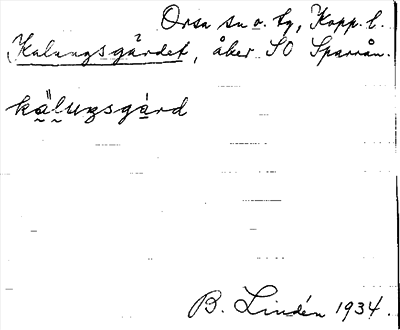 Orsa sn o. tg, Kopp. l.
Kalungsgårdet, åker SO Sparrån.
kä̰l̰uŋsgàrd
B. Lindén 1934.